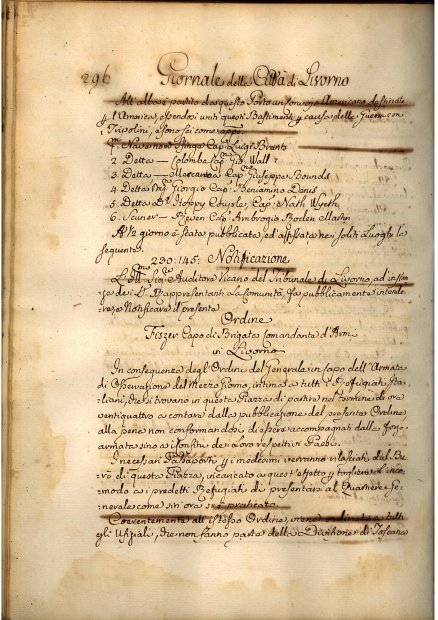 296 Giornale della Città di Livorno
All'alba è partito da questo Porto un Convojo Americano destinato
p l'America, essendosi uniti questi Bastimenti p causa della Guerra con
Tripolini, e sono sei come appo
1. Nave nom Cap. Luigi Brants
2 Detta — Colombe Cap. Gio. Wall
3 Detta — Cap. Giuseppe Bounds
4 Detta Giorgio Cap. Beniamino
5. Detta Da Happy Couple, Cap. Nath Wyeth
6. Scuner — Cap. Ambrogio Boden Mastin
A 12 giorno è stata pubblicata, ed affissata nei soliti Luoghi la
seguente.
No 145: Notificazione
L'Illmo Sigre Auditore Vicario del Tribunale di Livorno, ad instan-
za de' Rappresentanti La Comunità, fa pubblicamente intende-
re, e Notificare il presente
Ordine
Fiszer Capo di Brigata Comandante d'Armi
in Livorno
In conseguenza degl'Ordini del Generale in capo dell'Armata
di Osservazione del Mezzo Giorno, intima a tutti i Refugiati Ita-
liani, che si trovano in questa Piazza di partire nel termine di ore
ventiquattro a contare dalla pubblicazione del presente Ordine
alla pena non conformandosi di essere accompagnati dalla forza
armata sino ai Confini de' Loro respettivi Paesi.
I necessari Passaporti p i medesimi verranno rilasciati dal Bu-
rò di questa Piazza, incaricato a quest'effetto p togliere l'inco-
modo a i predetti Refugiati di presentarsi al Quartiere Ge-
nerale come sin'ora si è praticato.
Coerentemente all'istesso Ordine, viene ordinato a tutti
gli Ufiziali, che non fanno parte della Divisione di Toscana